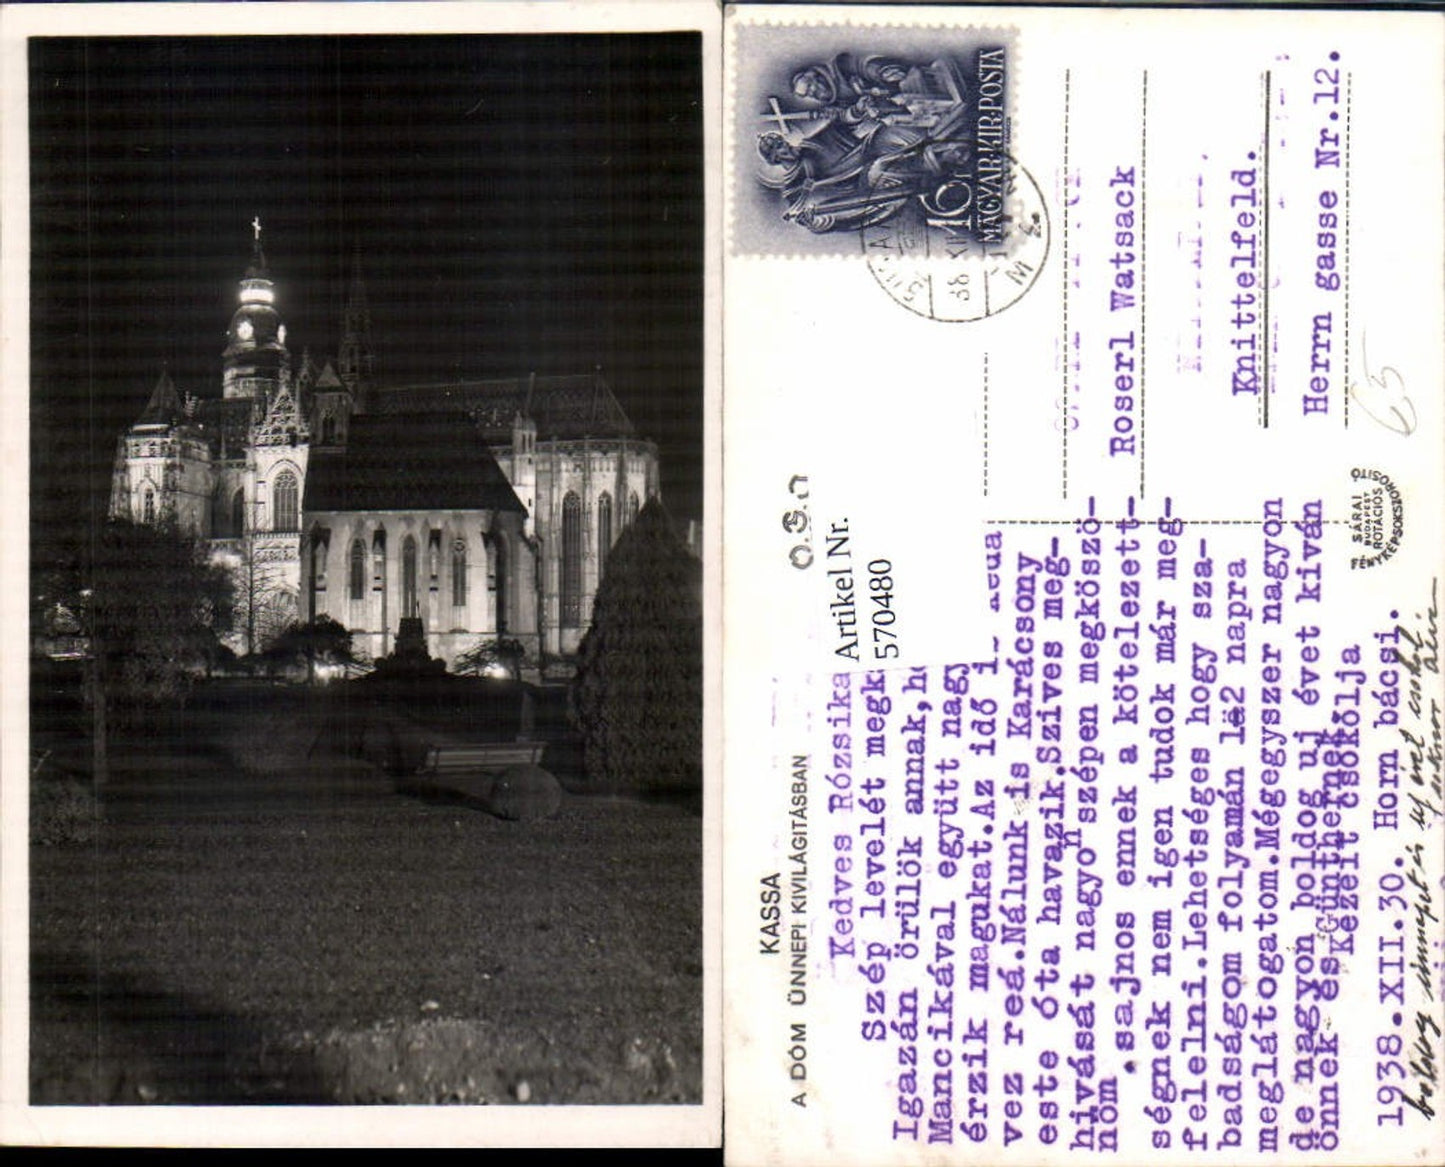 16f
MAGYAR KIR. POSTA
38 XII
O.S.J
Artikel Nr.
570480
KASSA
A DÓM ÜNNEPI KIVILÁGITÁSBAN
Roserl Watsack
Knittelfeld.
Herrn gasse Nr.12.
65
E. SÁRAI
BUDAPEST
ROTÁCIÓS
FÉNYKÉPSOKSZOROSITÓ
Kedves Rózsika
Szép levelét megk
Igazán örülök annak, ho
Mancikával együtt nagy
érzik magukat.Az idő i
vez reá.Nálunk is Karácsony
este óta havazik.Szives meg-
hivását nagyon szépen megköszö-
nöm
.sajnos ennek a kötelezett-
ségnek nem igen tudok már meg-
felelni.Lehetséges hogy sza-
badságom folyamán 1-2 napra
meglátogatom.Mégegyszer nagyon
de nagyon boldog uj évet kiván
önnek és Günthernek
Kezeit csókolja
1938.XII.30. Horn bácsi.
boldog ünnepet és uj évet